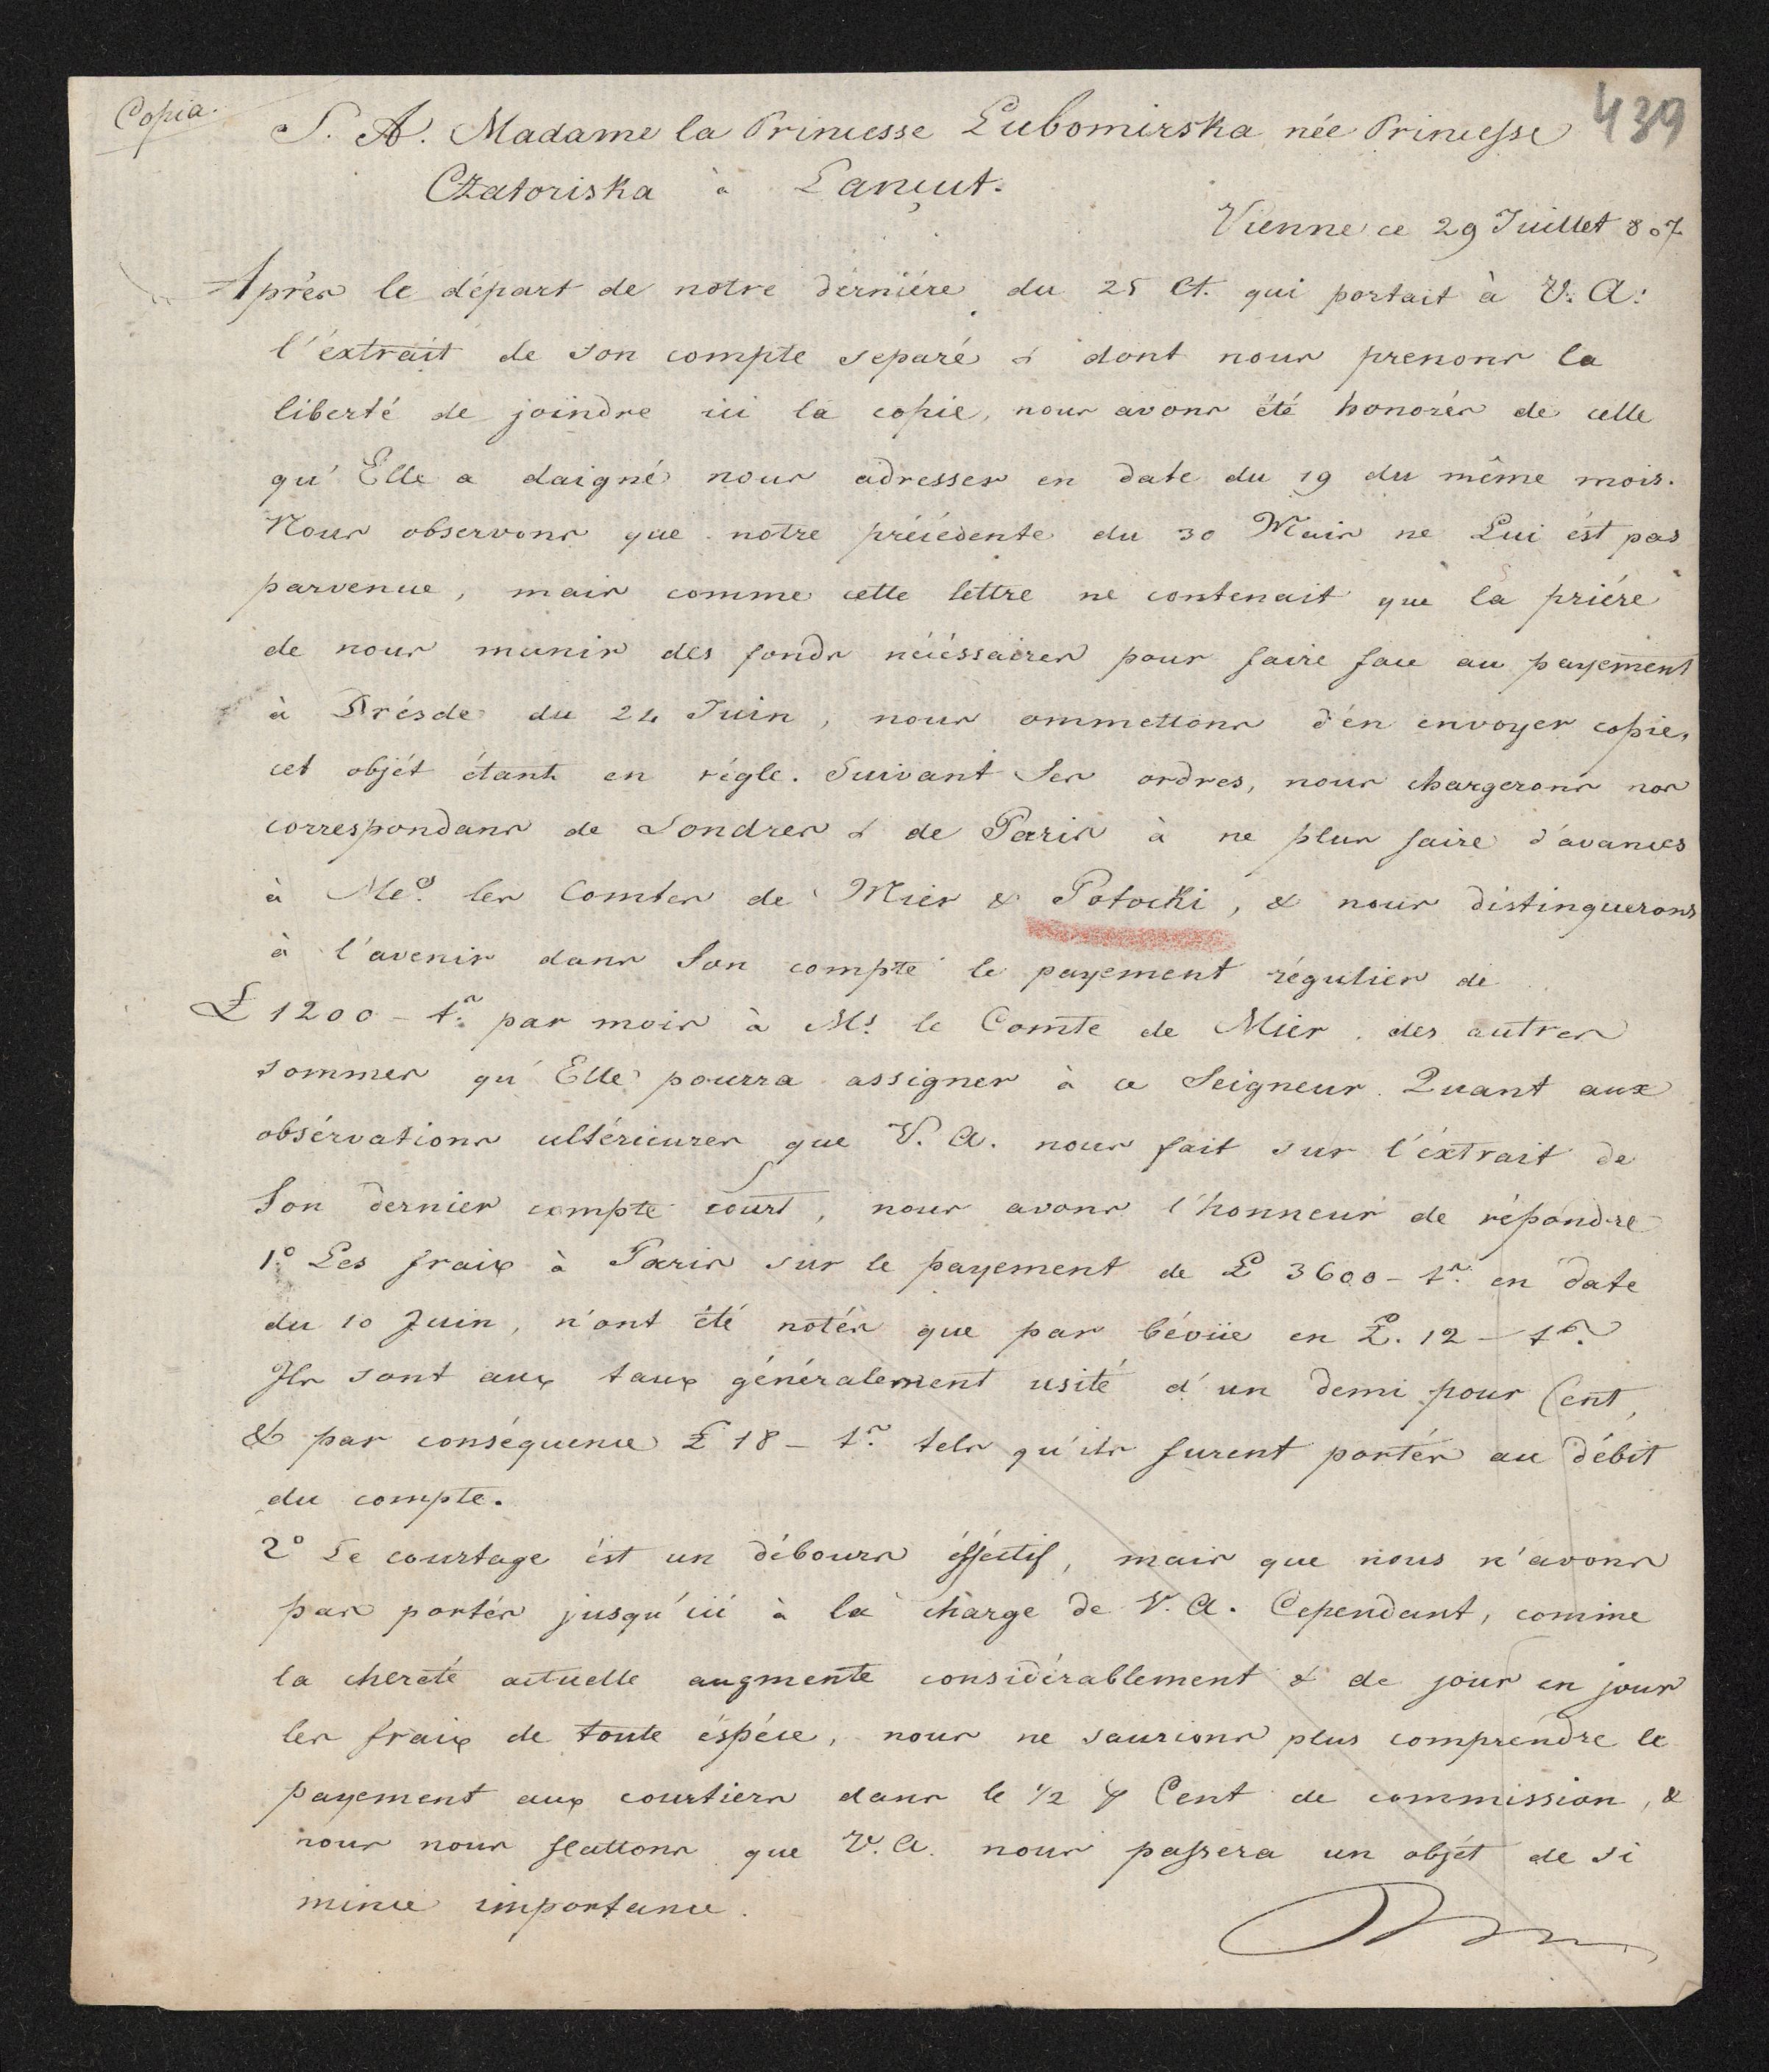 Copia.
439
S. A. Madame la Princesse Lubomirska née Princesse
Czatoriska à Lançut.
Vienne ce 29 Juillet 807
Après le départ de notre dérniére du 25 Ct. qui portait à V. A:
l'éxtrait de son compte separé & dont nous prenons la
liberté de joindre ici la copie, nous avons été honorés de celle
qu'Elle a daigné nous adresser en date du 19 du même mois.
Nous observons que notre précédente du 30 Mais ne Lui ést pas
parvenue, mais comme cette lettre ne contenait que la priére
de nous munir des fonds nécéssaires pour faire face au payement
à Drésde du 24 Juin, nous ommettons d'én envoyer copie,
cet objét étant en régle. Suivant Ses ordres, nous chargerons nos
correspondans de Londres & de Paris à ne plus faire d'avances
à Me.s les Comtes de Mier & Potocki, & nous distinguerons
à l'avenir dans Son compte le payement régulier de
£ 1200 - t.s par mois à M.s le Comte de Mier des autres
sommes qu'Elle pourra assigner à ce Seigneur. Quant aux
obsérvations ultérieures que V. A. nous fait sur l'éxtrait de
Son dernier compte court, nous avons l'honneur de répondre
1.o Les fraix à Paris sur le payement de £ 3600 - t.s en date
du 10 Juin, n'ont été notés que par bévüe en £. 12 - t.s
Ils sont aux taux généralement usité d'un demi pour Cent,
& par conséquence £ 18 - t.s tels qu'ils furent portés au débit
du compte.
2.o Le courtage ést un débours éfféctif, mais que nous n'avons
pas portés jusqu'ici à la charge de V. A. Cependant, comme
la chereté actuelle augmente considérablement & de jour en jour
les fraix de toute éspéce, nous ne saurions plus comprendre le
payement aux courtiers dans le 1/2 p Cent de commission, &
nous nous flattons que V. A. nous passera un objét de si
mince importance.